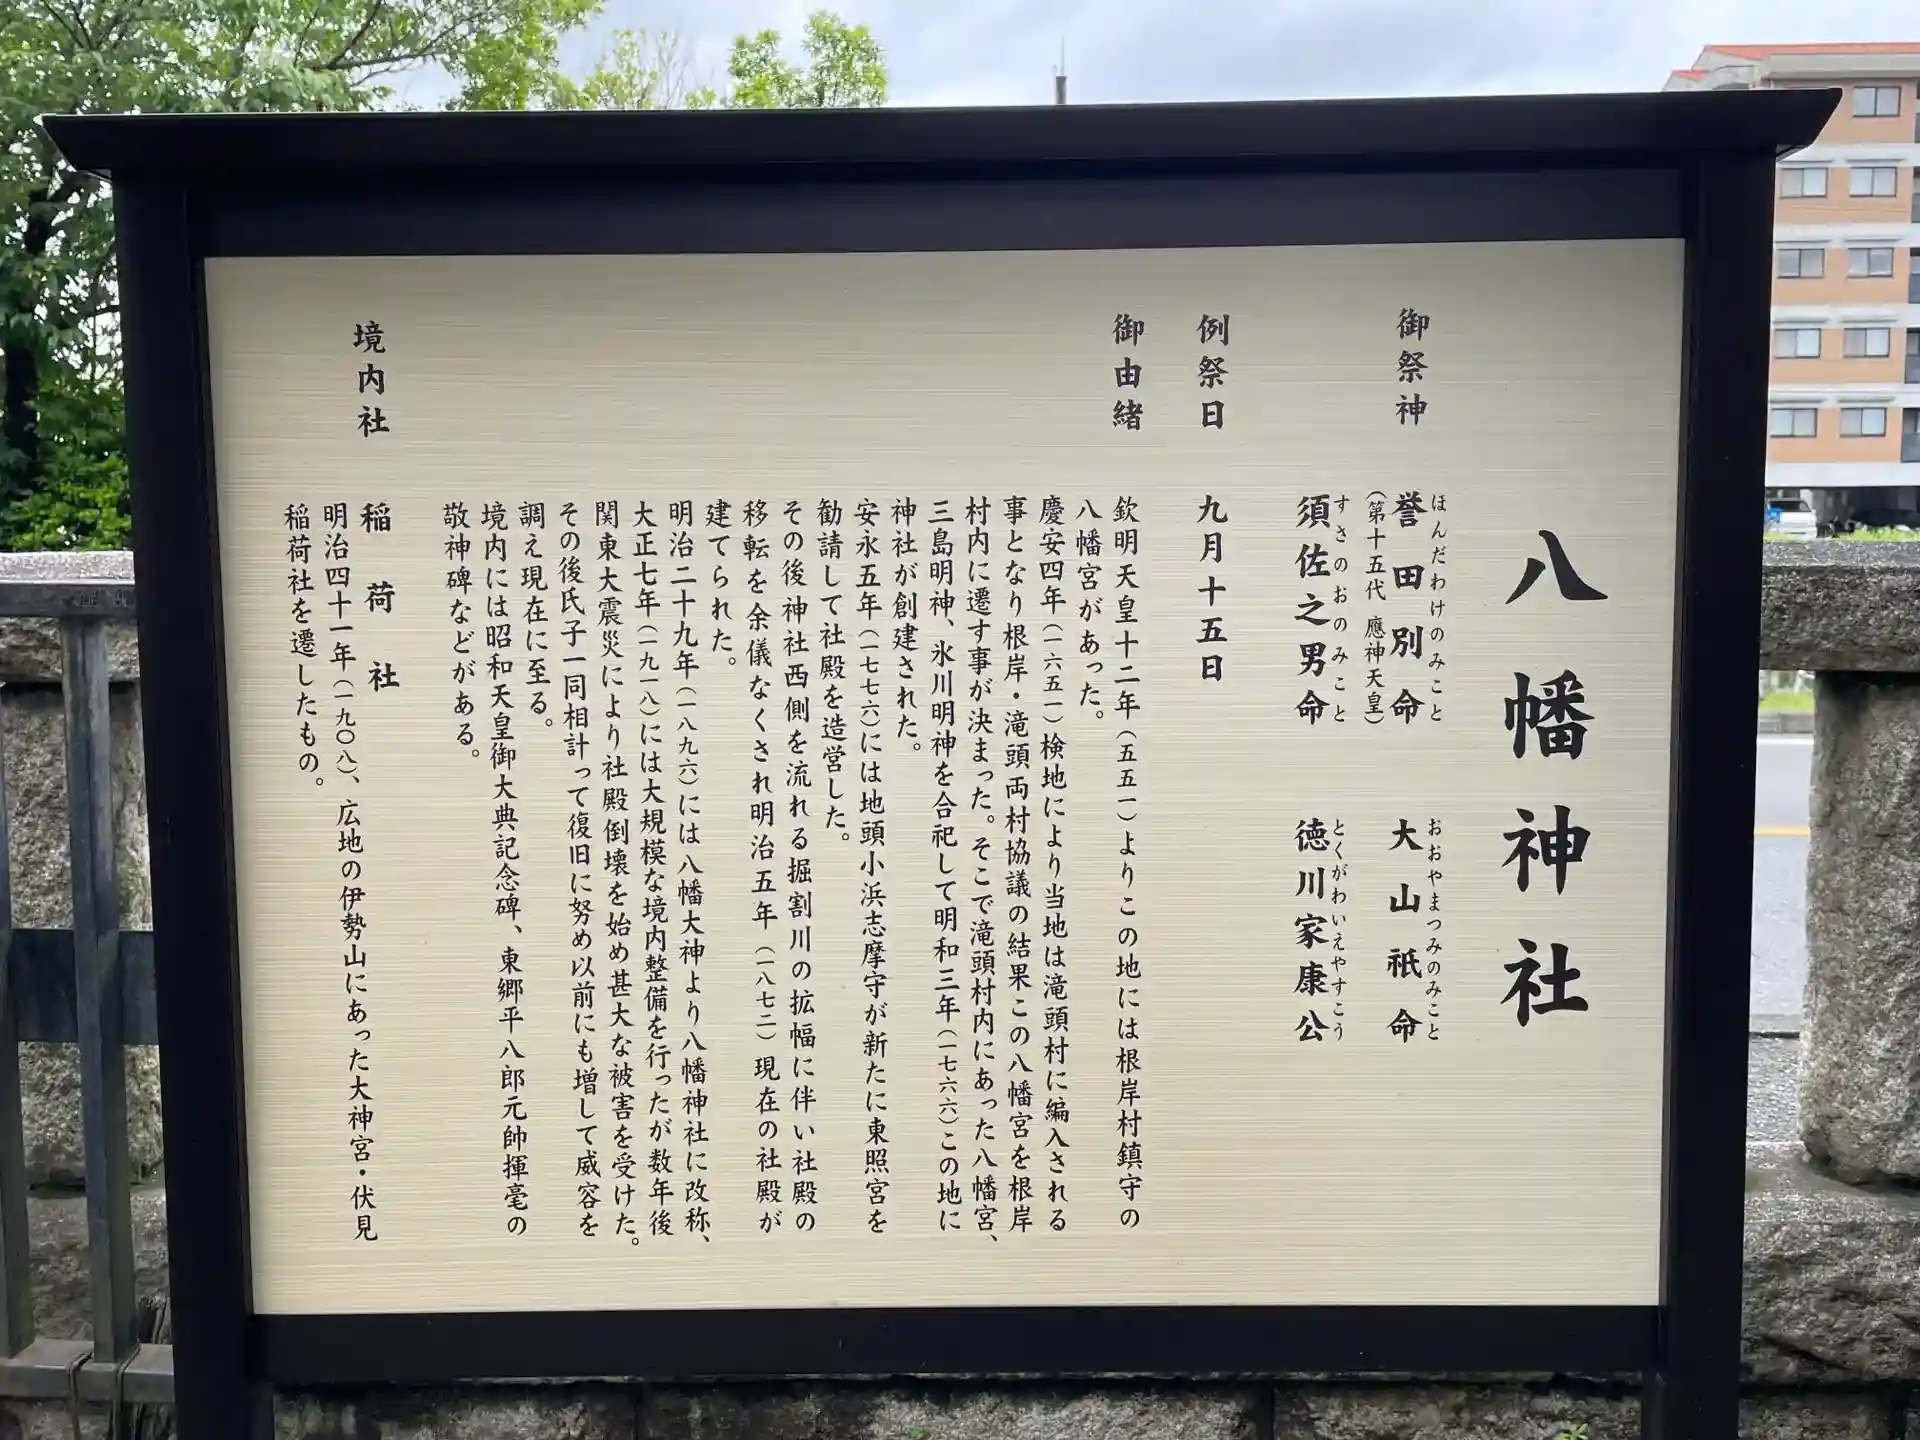 八幡神社
御祭神
ほんだわけのみこと
誉田別命
(第十五代 應神天皇)
おおやまつみのみこと
大山祇命
すさのおのみこと
須佐之男命
とくがわいえやすこう
徳川家康公
例祭日 九月十五日
御由緒 欽明天皇十二年(五五一)よりこの地には根岸村鎮守の
八幡宮があった。
慶安四年(一六五一)検地により当地は滝頭村に編入される
事となり根岸・滝頭両村協議の結果この八幡宮を根岸
村内に遷す事が決まった。そこで滝頭村内にあった八幡宮、
三島明神、氷川明神を合祀して明和三年(一七六六)この地に
神社が創建された。
安永五年(一七七六)には地頭小浜志摩守が新たに東照宮を
勧請して社殿を造営した。
その後神社西側を流れる掘割川の拡幅に伴い社殿の
移転を余儀なくされ明治五年(一八七二)現在の社殿が
建てられた。
明治二十九年(一八九六)には八幡大神より八幡神社に改称、
大正七年(一九一八)には大規模な境内整備を行ったが数年後
関東大震災により社殿倒壊を始め甚大な被害を受けた。
その後氏子一同相計って復旧に努め以前にも増して威容を
調え現在に至る。
境内には昭和天皇御大典記念碑、東郷平八郎元帥揮毫の
敬神碑などがある。
境内社 稲荷社
明治四十一年(一九〇八)、広地の伊勢山にあった大神宮・伏見
稲荷社を遷したもの。